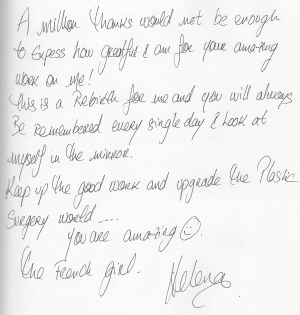 A million Thanks would not be enough
to Express how greatful I am for your amazing
work on me!
This is a Rebirth for me and you will always
Be Remembered every single day I Look at
myself in the mirror.
Keep up the good work and upgrade the Plastic
Surgery world ....
you are amazing ☺.
The French girl.
Helena